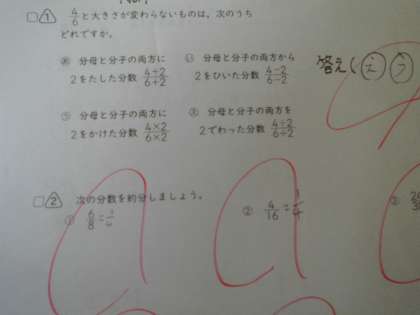 □△1 4/6と大きさが変わらないものは，次のうち
どれですか。
あ 分母と分子の両方に
2をたした分数 4+2/6+2
い 分母と分子の両方から
2をひいた分数 4-2/6-2
答え( え う
う 分母と分子の両方に
2をかけた分数 4×2/6×2
え 分母と分子の両方を
2でわった分数 4÷2/6÷2
□△2 次の分数を約分しましょう。
① 6/8 =
② 4/16 = 1/4
③